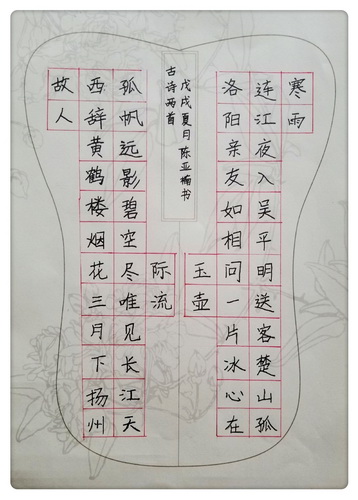 寒雨
连江夜入吴平明送客楚山孤
洛阳亲友如相问一片冰心在
玉壶
古诗两首
戊戌夏月 陈亚楠书
故人
西辞黄鹤楼烟花三月下扬州
孤帆远影碧空尽唯见长江天
际流